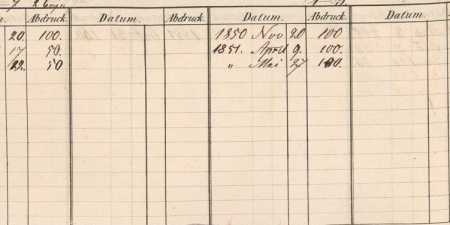 Abdruck. Datum. Abdruck. Datum. Abdruck. Datum.
20. 100. 1850 Nov 20 100
17 50. 1851. April 9. 100.
22. 50 " Mai 27 100.